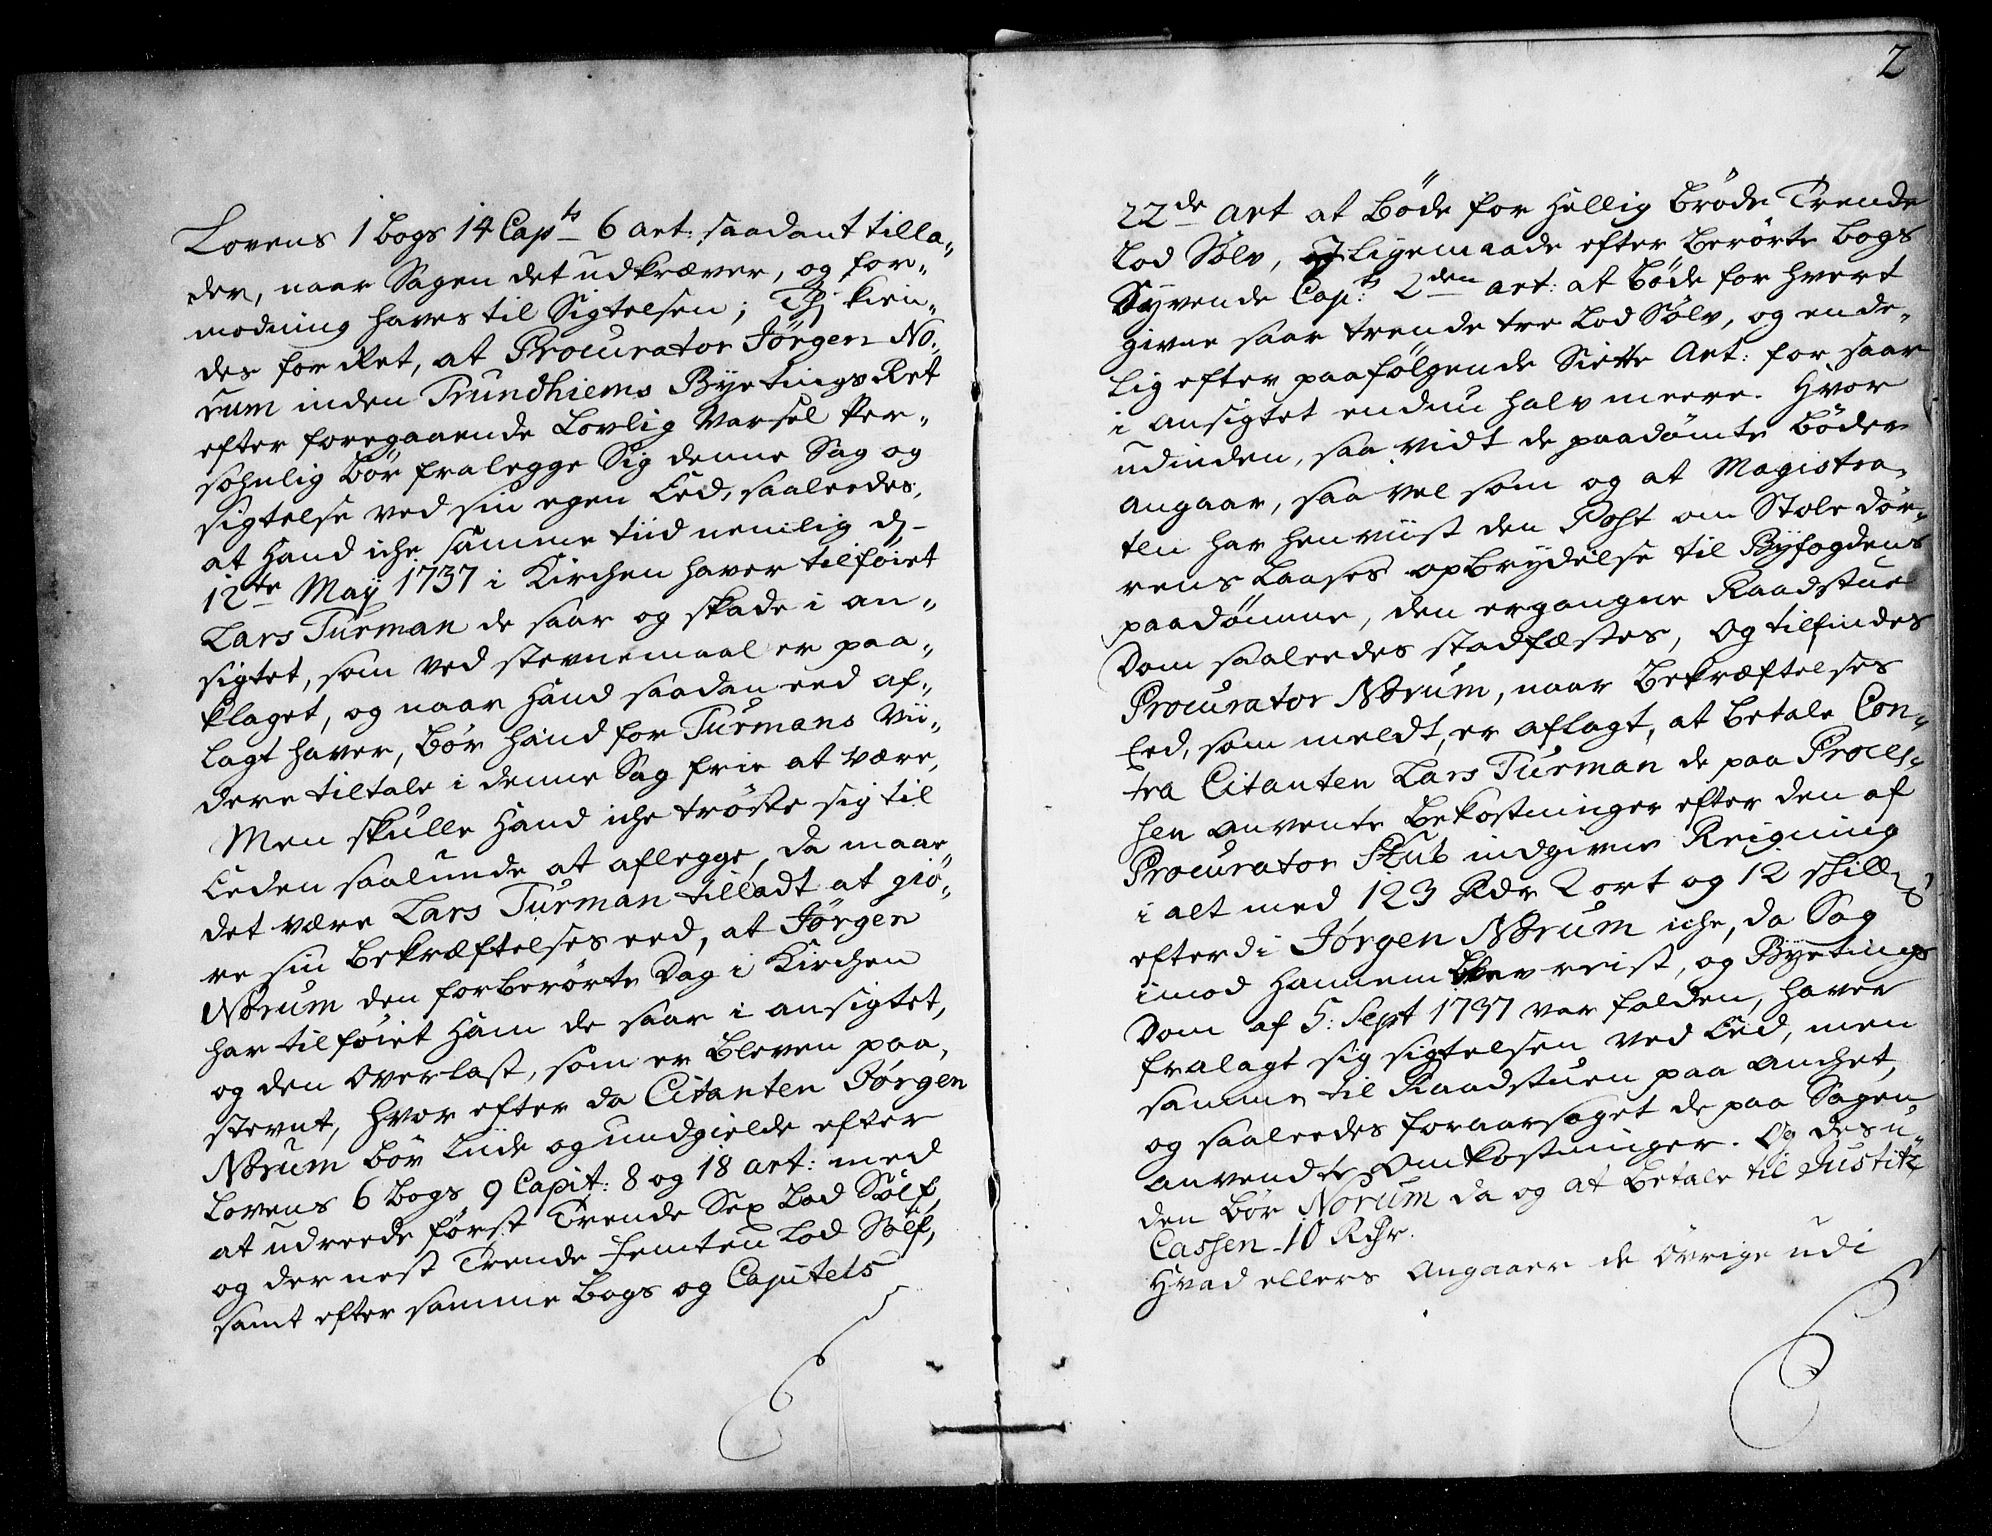 Lovens 1 bogs 14 Capts 6 art: saadant tilla„
der, naar Sagen det udkræver, og for„
modning haves til Sigtelsen; Thj kien„
des for Ret, at Procurator Jörgen No„
rum inden Trundhiems Byetings Ret
efter foregaaende Lovlig Varsel Per„
sohnlig bör fralegge Sig denne Sag og
sigtelse ved sin egen Eed, saaleedes,
at Hand iche samme tiid nemlig d.
12te Maij 1737 i Kirchen haver tilföiet
Lars Turman de saar og skade i an„
sigtet, som ved stevnemaal er paa„
klaget, og naar Hand saadan eed af„
lagt haver, bör hand for Turmans Vii„
dere tiltale i denne Sag frie at være,
Men skulle Hand iche tröste sig til
Eeden saalunde at aflegge, da maae
det være Lars Turman tilladt at giö„
re sin bekræftelses eed, at Jörgen
Norum den forberörte Dag i Kirchen
har tilföiet Ham de saar i ansigtet,
og den Overlast, som er bleven paa„
stevnt, Hvor efter da Citanten Jörgen
Norum bör Liide og undgielde efter
Lovens 6 bogs 9 Capit: 8 og 18 art: med
at udreede först Trende Sex Lod Sölf,
og der nest Trende Femten Lod Sölf,
samt efter samme bogs og Capitels
2
22de Art at böde for Hellig bröde Trende
Lod Sölv, og Ligemaade efter berörte bogs
Syvende Cap:ts 2den art: at böde for hvert
givne saar trende tre Lod Sölv, og ende„
lig efter paafölgende Siette Art: for saar
i ansigtet endnu halv meere. Hvor
udinden, saa vidt de paadömte böder
angaar, saa vel som og at Magistra„
ten har henviist den Post om Stole dör„
rens Laases opbrydelse til Byfogdens
paadömme, den ergangne Raadstue
Dom saaleedes stadfæstes, Og tilfindes
Procurator Norum, naar bekræftelses
Eed, som meldt, er aflagt, at betale Con„
tra Citanten Lars Turman de paa Proces„
sen anvente bekostninger efter den af
Procurator Stub indgivne Reigning
i alt med 123 Rdr 2 ort og 12 skill
efterdi Jörgen Norum iche, da Sag
imod Hannem blev reist, og Byetings
Dom af 5: Sept 1737 var falden, haver
fralagt sig sigtelsen ved Eed, men
samme til Raadstuen paa anchet,
og saaleedes foraarsaget de paa Sagen
anvendte Omkostninger. Og desu„
den bör Norum da og at betale til Justitz
Cassen 10 Rdr.
Hvad ellers Angaaer de övrige udi